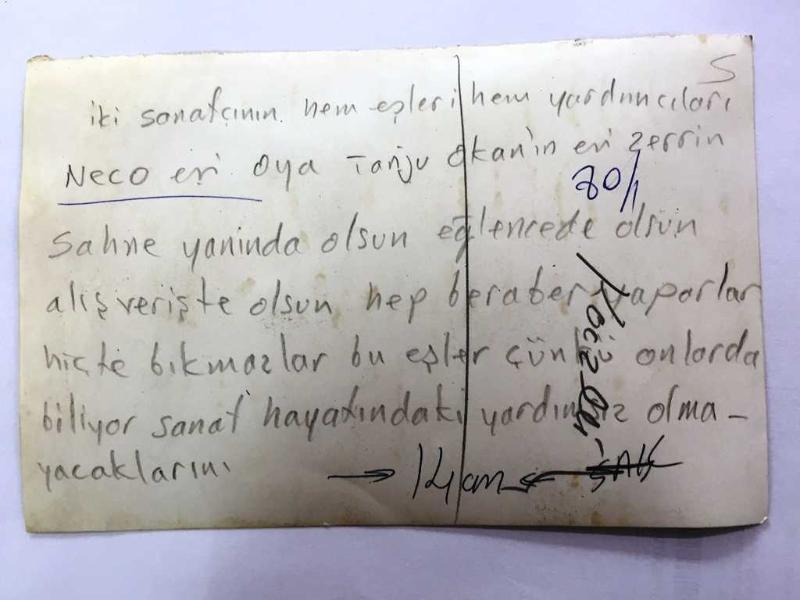 S
iki sanatçının hem eşleri hem yardımcıları
Neco eşi Oya Tanju Okan'ın eşi Zerrin
80/1
Sahne yanında olsun eğlencede olsun
alışverişte olsun hep beraber yaparlar
hiçte bıkmazlar bu eşler çünkü onlarda
biliyor sanat hayatındaki yardımsız olma-
yacaklarını
→ 14 cm ←